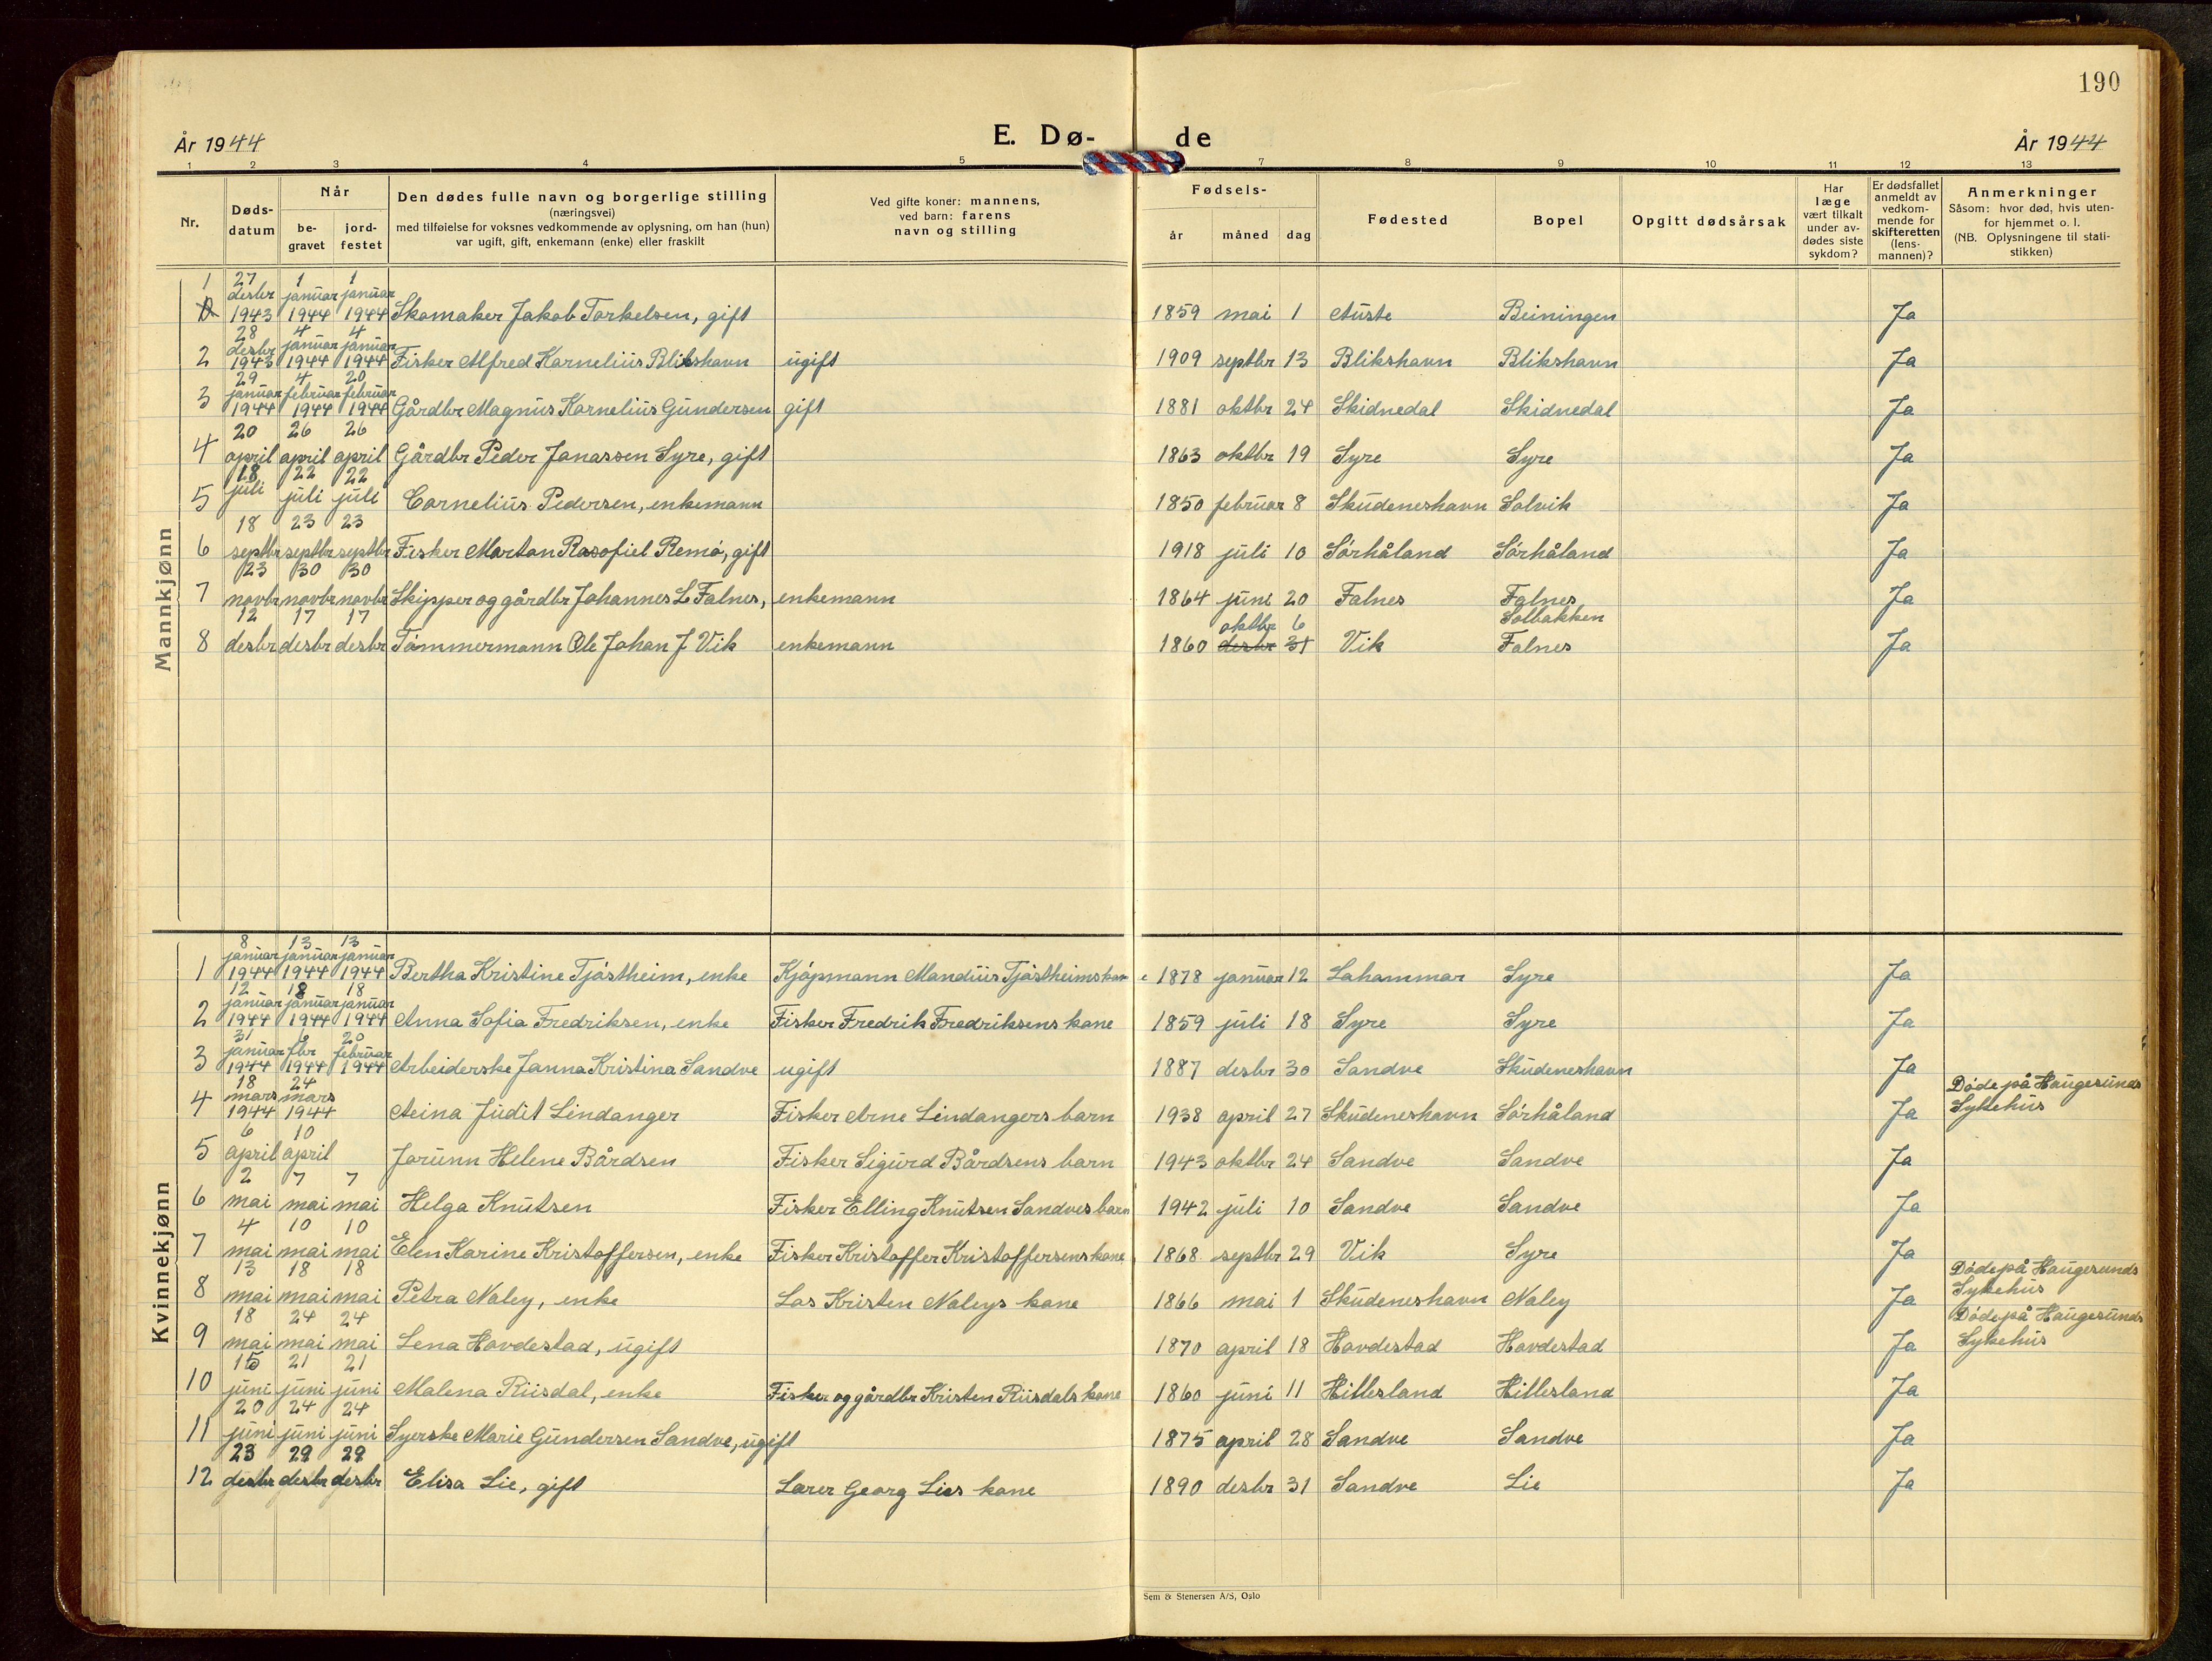 190
År 1944
E. Dø- de
År 1944
1 2 3 4 5 7 8 9 10 11 12 13
Nr.
Døds-
datum
Når
be-
gravet
jord-
festet
Den dødes fulle navn og borgerlige stilling
(næringsvei)
med tilføielse for voksnes vedkommende av oplysning, om han (hun)
var ugift, gift, enkemann (enke) eller fraskilt
Ved gifte koner: mannens,
ved barn: farens
navn og stilling
Fødsels-
år måned dag
Fødested
Bopel
Opgitt dødsårsak
Har
læge
vært tilkalt
under av-
dødes siste
sykdom?
Er dødsfallet
anmeldt av
vedkom-
mende for
skifteretten
(lens-
mannen)?
Anmerkninger
Såsom: hvor død, hvis uten-
for hjemmet o. l.
(NB. Oplysningene til stati-
stikken)
Mannkjønn
1 27 1 1
desbr januar januar
1943 1944 1944 Skomaker Jakob Torkelsen, gift 1859 mai 1 Auste Beiningen Ja
28 4 4
desbr januar januar
2 1943 1944 1944 Fisker Alfred Kornelius Blikshavn ugift 1909 septbr 13 Blikshavn Blikshavn Ja
29 4 20
januar februar februar
3 1944 1944 1944 Gårdbr Magnus Kornelius Gundersen gift 1881 oktbr 24 Skidnedal Skidnedal Ja
20 26 26
4 april april april Gårdbr Peder Jonassen Syre, gift 1863 oktbr 19 Syre Syre Ja
18 22 22
5 juli juli juli Cornelius Pedersen, enkemann 1850 februar 8 Skudeneshavn Solvik Ja
18 23 23
6 septbr septbr septbr Fisker Morton Rasofiel Remø, gift 1918 juli 10 Sørhåland Sørhåland Ja
23 30 30
7 novbr novbr novbr Skipper og gårdbr Johannes L Falnes, enkemann 1864 juni 20 Falnes Falnes Ja
12 17 17 oktbr 6 Solbakken
8 desbr desbr desbr Tømmermann Ole Johan J Vik enkemann 1860 desbr 31 Vik Falnes Ja
Kvinnekjønn
8 13 13
januar januar januar
1 1944 1944 1944 Bertha Kristine Tjøstheim, enke Kjøpmann Mandius Tjøstheims kone 1878 januar 12 Lahammar Syre Ja
12 18 18
januar januar januar
2 1944 1944 1944 Anna Sofia Fredriksen, enke Fisker Fredrik Fredriksens kone 1859 juli 18 Syre Syre Ja
31 20
januar fbr februar
3 1944 1944 1944 Arbeiderske Janna Kristina Sandve ugift 1887 desbr 30 Sandve Skudeneshavn Ja
18 24
mars mars Døde på Haugesunds
4 1944 1944 Aeina Judit Lindanger Fisker Arne Lindangers barn 1938 april 27 Skudeneshavn Sørhåland Ja Sykehus
6 10
5 april april Jorunn Helene Bårdsen Fisker Sigurd Bårdsens barn 1943 oktbr 24 Sandve Sandve Ja
2 7 7
6 mai mai mai Helga Knutsen Fisker Elling Knutsen Sandves barn 1942 juli 10 Sandve Sandve Ja
4 10 10
7 mai mai mai Elen Karine Kristoffersen, enke Fisker Kristoffer Kristoffersens kone 1868 septbr 29 Vik Syre Ja
13 18 18 Døde på Haugesunds
8 mai mai mai Petra Naley, enke Los Kristen Naleys kone 1866 mai 1 Skudeneshavn Naley Ja Sykehus
18 24 24 Døde på Haugesunds
9 mai mai mai Lena Hovdestad, ugift 1870 april 18 Hovdestad Hovdestad Ja Sykehus
15 21 21
10 juni juni juni Malena Riisdal, enke Fisker og gårdbr Kristen Riisdals kone 1860 juni 11 Hillesland Hillesland Ja
20 24 24
11 juni juni juni Syerske Marie Gundersen Sandve, ugift 1875 april 28 Sandve Sandve Ja
23 29 29
12 desbr desbr desbr Elisa Lie, gift Lærer Georg Lies kone 1890 desbr 31 Sandve Lie Ja
Sem & Stenersen A/S, Oslo